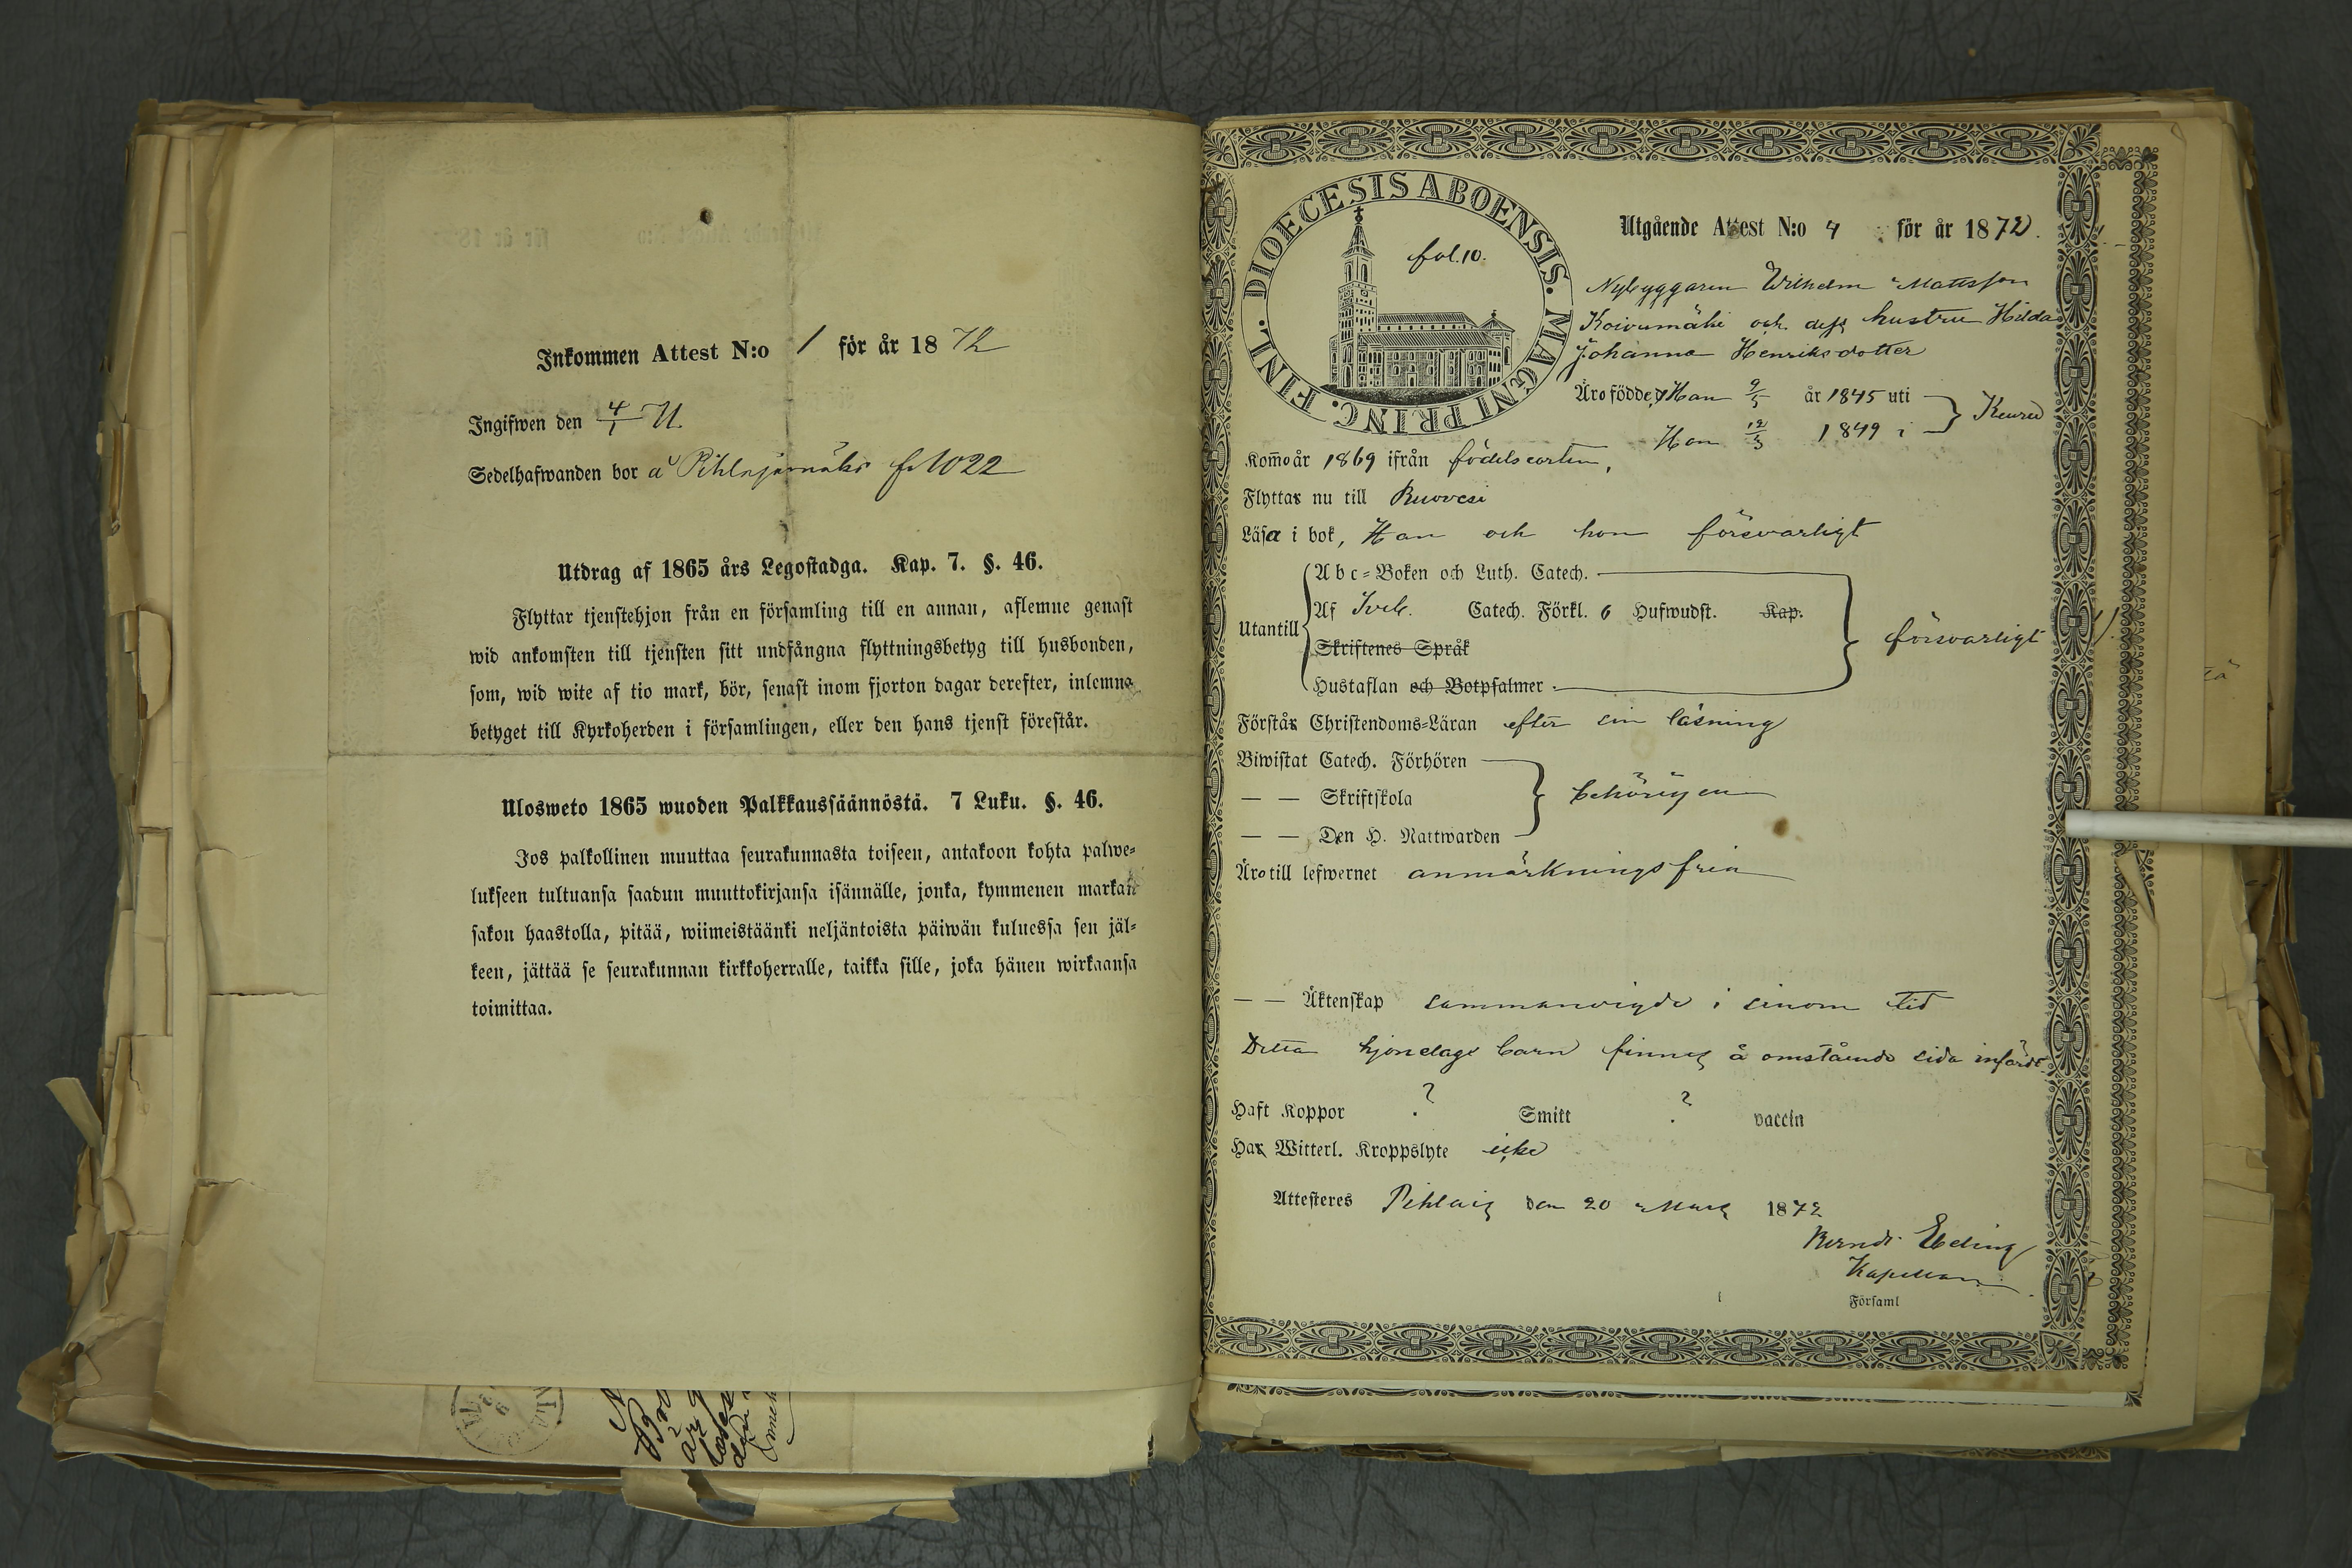 Inkommen Attest N:o 1 för år 1872
Ingifwen den 4/1 72.
Sedelhafwanden bor å Pihlajamäki f. 1022
Utdrag af 1865 års Legostadga. Kap. 7. §. 46.
Flyttar tjenstehjon från en församling till en annan, aflemne genast
wid ankomsten till tjensten sitt undfångna flyttningsbetyg till husbonden,
som, wid wite af tio mark, bör, senast inom fjorton dagar derefter, inlemna
betyget till Kyrkoherden i församlingen, eller den hans tjenst förestår.
Ulosweto 1865 wuoden Palkkaussäännöstä. 7 Luku. §. 46.
Jos palkollinen muuttaa seurakunnasta toiseen, antakoon kohta palwe-
lukseen tultuansa saadun muuttokirjansa isännälle, jonka, kymmenen markan
sakon haastolla, pitää, wiimeistäänki neljäntoista päiwän kuluessa sen jäl-
keen, jättää se seurakunnan kirkkoherralle, taikka sille, joka hänen wirkaansa
toimittaa.
DIOECESIS ABOENSIS. MAGNI PRINC. FINL.
fol. 10.
Utgående Attest N:o 4 för år 1872.
Nybyggaren Wilhelm Mattsson
Koivumäki och dess hustru Hilda
Johanna Henriksdotter
Äro födde, Han 9/5 år 1845 uti
Hon 12/3 1849 i } Keuru
Kommo år 1869 ifrån födelseorten,
Flyttar nu till Ruovesi
Läsa i bok, Han och hon försvarligt
Utantill
Abc-Boken och Luth. Catech.
Af Sveb. Catech. Förkl. 6 Hufwudst. Kap.
Skriftenes Språk
Hustaflan och Botpsalmer
försvarligt
Förstår Christendoms-Läran efter sin läsning
Biwistat Catech. Förhören
— — Skriftskola
— — Den H. Nattwarden
behörigen
Äro till lefwernet anmärkningsfria
— — Äktenskap sammanvigde i sinom tid
Detta hjonelags barn finnes å omstående sida infördt.
Haft Koppor ? Smitt ? vaccin
Har Witterl. Kroppslyte icke
Attesteres Pihlais den 20 Mars 1872
Berndt
Kapellan
Församl